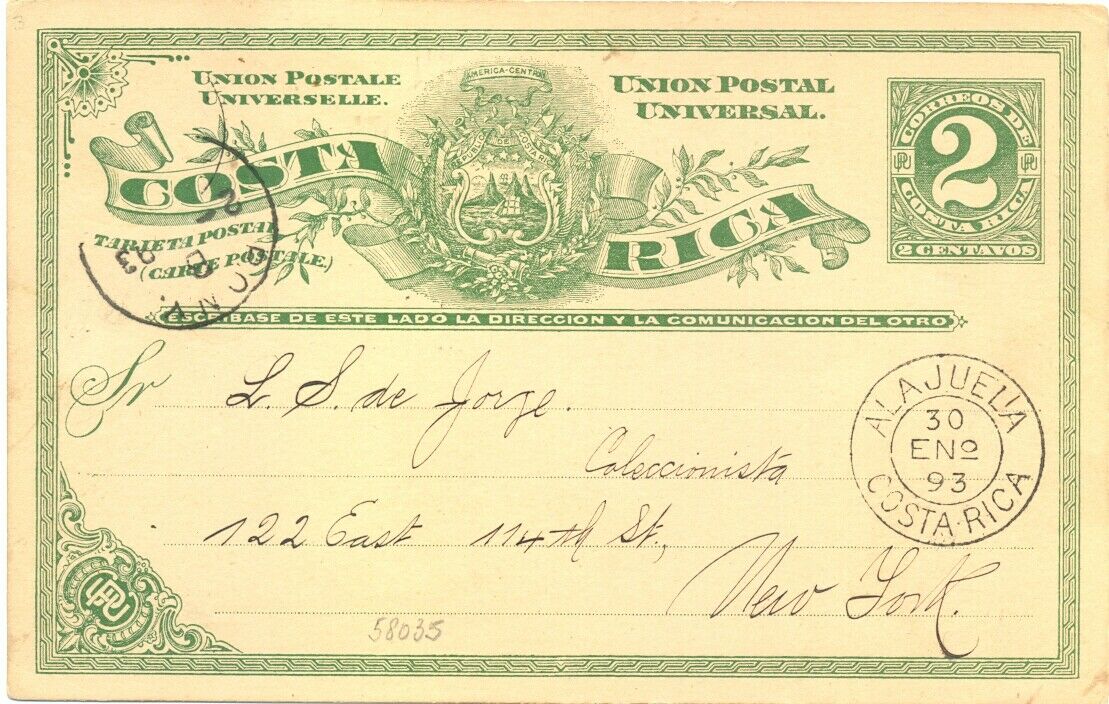 UNION POSTALE
UNIVERSELLE.
UNION POSTAL
UNIVERSAL.
AMERICA-CENTRAL
CORREOS DE
2
COSTA RICA
2 CENTAVOS
COSTA RICA
TARJETA POSTAL
(CARTE POSTALE.)
ESCRIBASE DE ESTE LADO LA DIRECCION Y LA COMUNICACION DEL OTRO
Sr L. S. de Jorge.
Coleccionista
122 East 114th St,
New York.
ALAJUELA
30
ENO
93
COSTA-RICA
UPU
58035